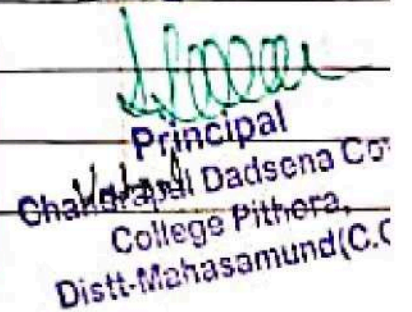 Principal
Chandrapal Dadsena Co
College Pithora,
Distt-Mahasamund(C.G